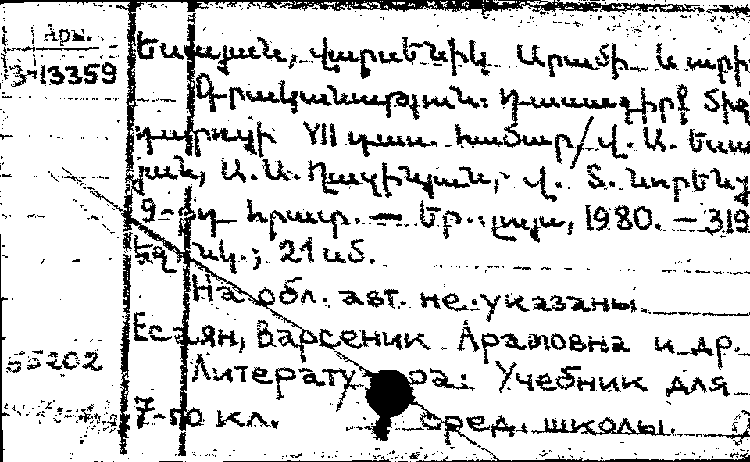 Арм.
3-13359
Եսայան, Վարսենիկ Արամի և ուրիշ
Գրականություն: Դասագիրք միջ
դպրոցի VII դաս. համար/ Վ. Ա. Եսա
յան, Ա. Ա.
9-րդ հրատ. — Եր.: Լույս, 1980. — 319
եջ, նկ.; 21 սմ.
На обл. авт. не указаны.
Есаян, Варсеник Арамовна и др.
55202
Литература: Учебник для
7-го кл. сред. школы.